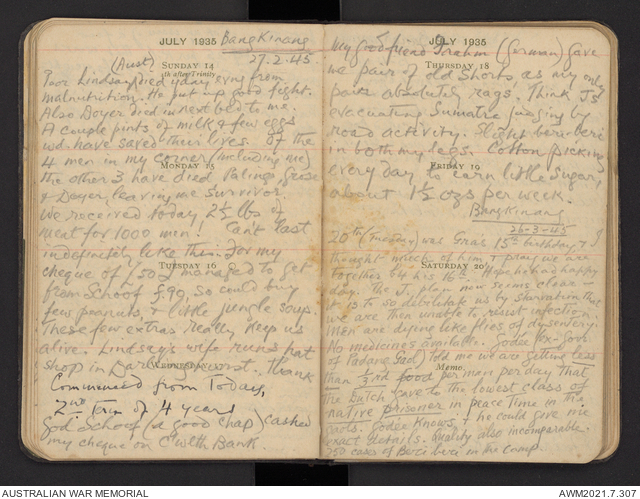 JULY 1935 Bangkinang
27.2.45
SUNDAY 14
4th after Trinity
(Aust)
Poor Lindsay died yday evng from
malnutrition. He put up good fight.
Also Doyer died in next bed to me.
A couple pints of milk & few eggs
wd have saved their lives. Of the
4 men in my corner (including me)
MONDAY 15
the other 3 have died Palings,
& Doyer, leaving me survivor.
We received today 2½ lbs of
meat for 1000 men! Can't last
indefinitely like this. For my
TUESDAY 16
cheque of £50 I managed to get
from Schoof f.90, so could buy
few peanuts, & little jungle soup.
These few extras really keep us
alive. Lindsay's wife runs hat
shop in Darlinghurst. Thank
WEDNESDAY 17
Commenced from Today,
2nd Term of 4 years
God Schoof (a good chap) cashed
my cheque on C'wlth Bank.
JULY 1935
THURSDAY 18
My good friend Frahm (German) gave
me pair of old shorts as my only
pair absolutely rags. Think Js
evacuating Sumatra judging by
road activity. Slight beri-beri
in both my legs. Cotton picking
FRIDAY 19
every day to earn little sugar,
about 1½ ozs per week.
Bangkinang
26-3-45
20th (Tuesday) was Gra's 15th birthday & I
thought much of him & pray we are
together by his 16th. Hope he had happy
SATURDAY 20
day. The Js plan now seems clear -
it is to so debilitate us by starvation that
we are then unable to resist infection.
Men are dying like flies of dysentery.
No medicines available. Godee (ex-Gov
of Padang Gaol) told me we are getting less
MEMO
than 1/3rd food per man per day that
the Dutch gave to the lowest class of
native prisoner in peace time in the
gaols. Godee knows, & he could give me
exact details. Quality also incomparable.
250 cases of Beri beri in the camp.
AUSTRALIAN WAR MEMORIAL
AWM2021.7.307